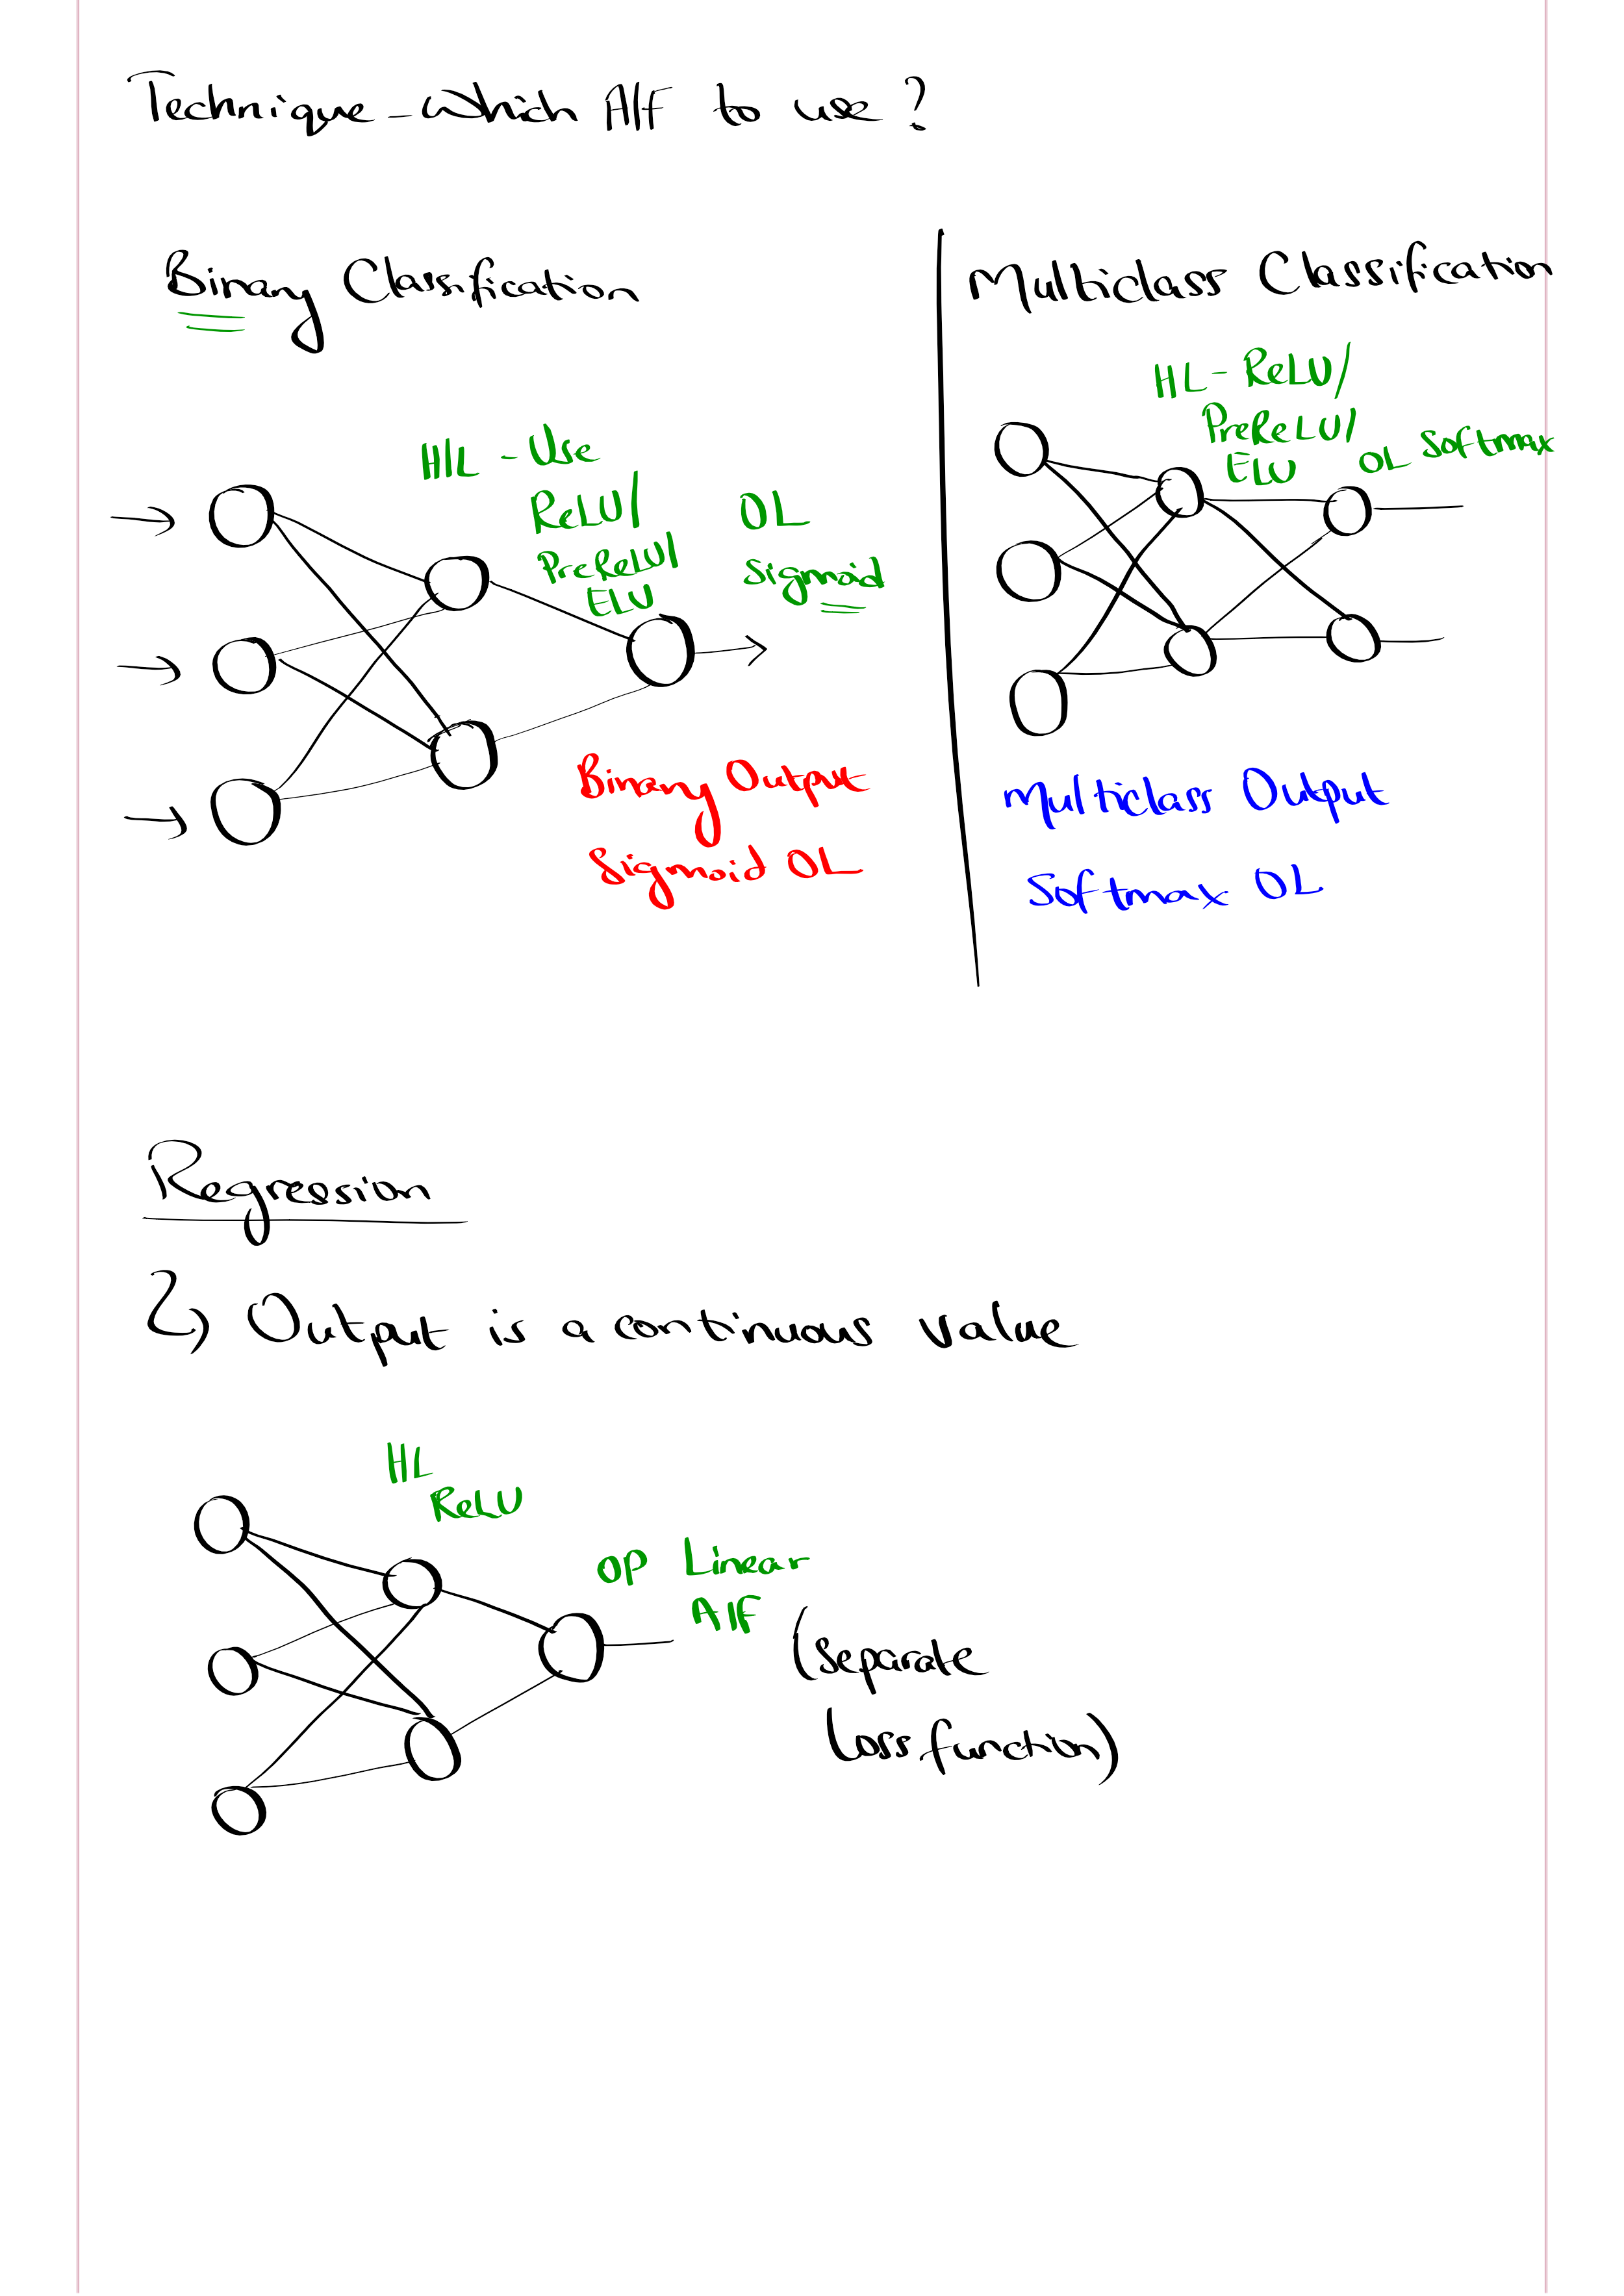 Technique - which A/F to use?
Binary Classification
H/L - Use
ReLU/
PreReLU/
ELU
OL
Sigmoid
Binary Output
Sigmoid OL
Multiclass Classification
HL - ReLU/
PreReLU/
ELU
OL Softmax
Multiclass Output
Softmax OL
Regression
Output is a continuous value
HL
ReLU
OP Linear
A/F
(Separate
loss function)